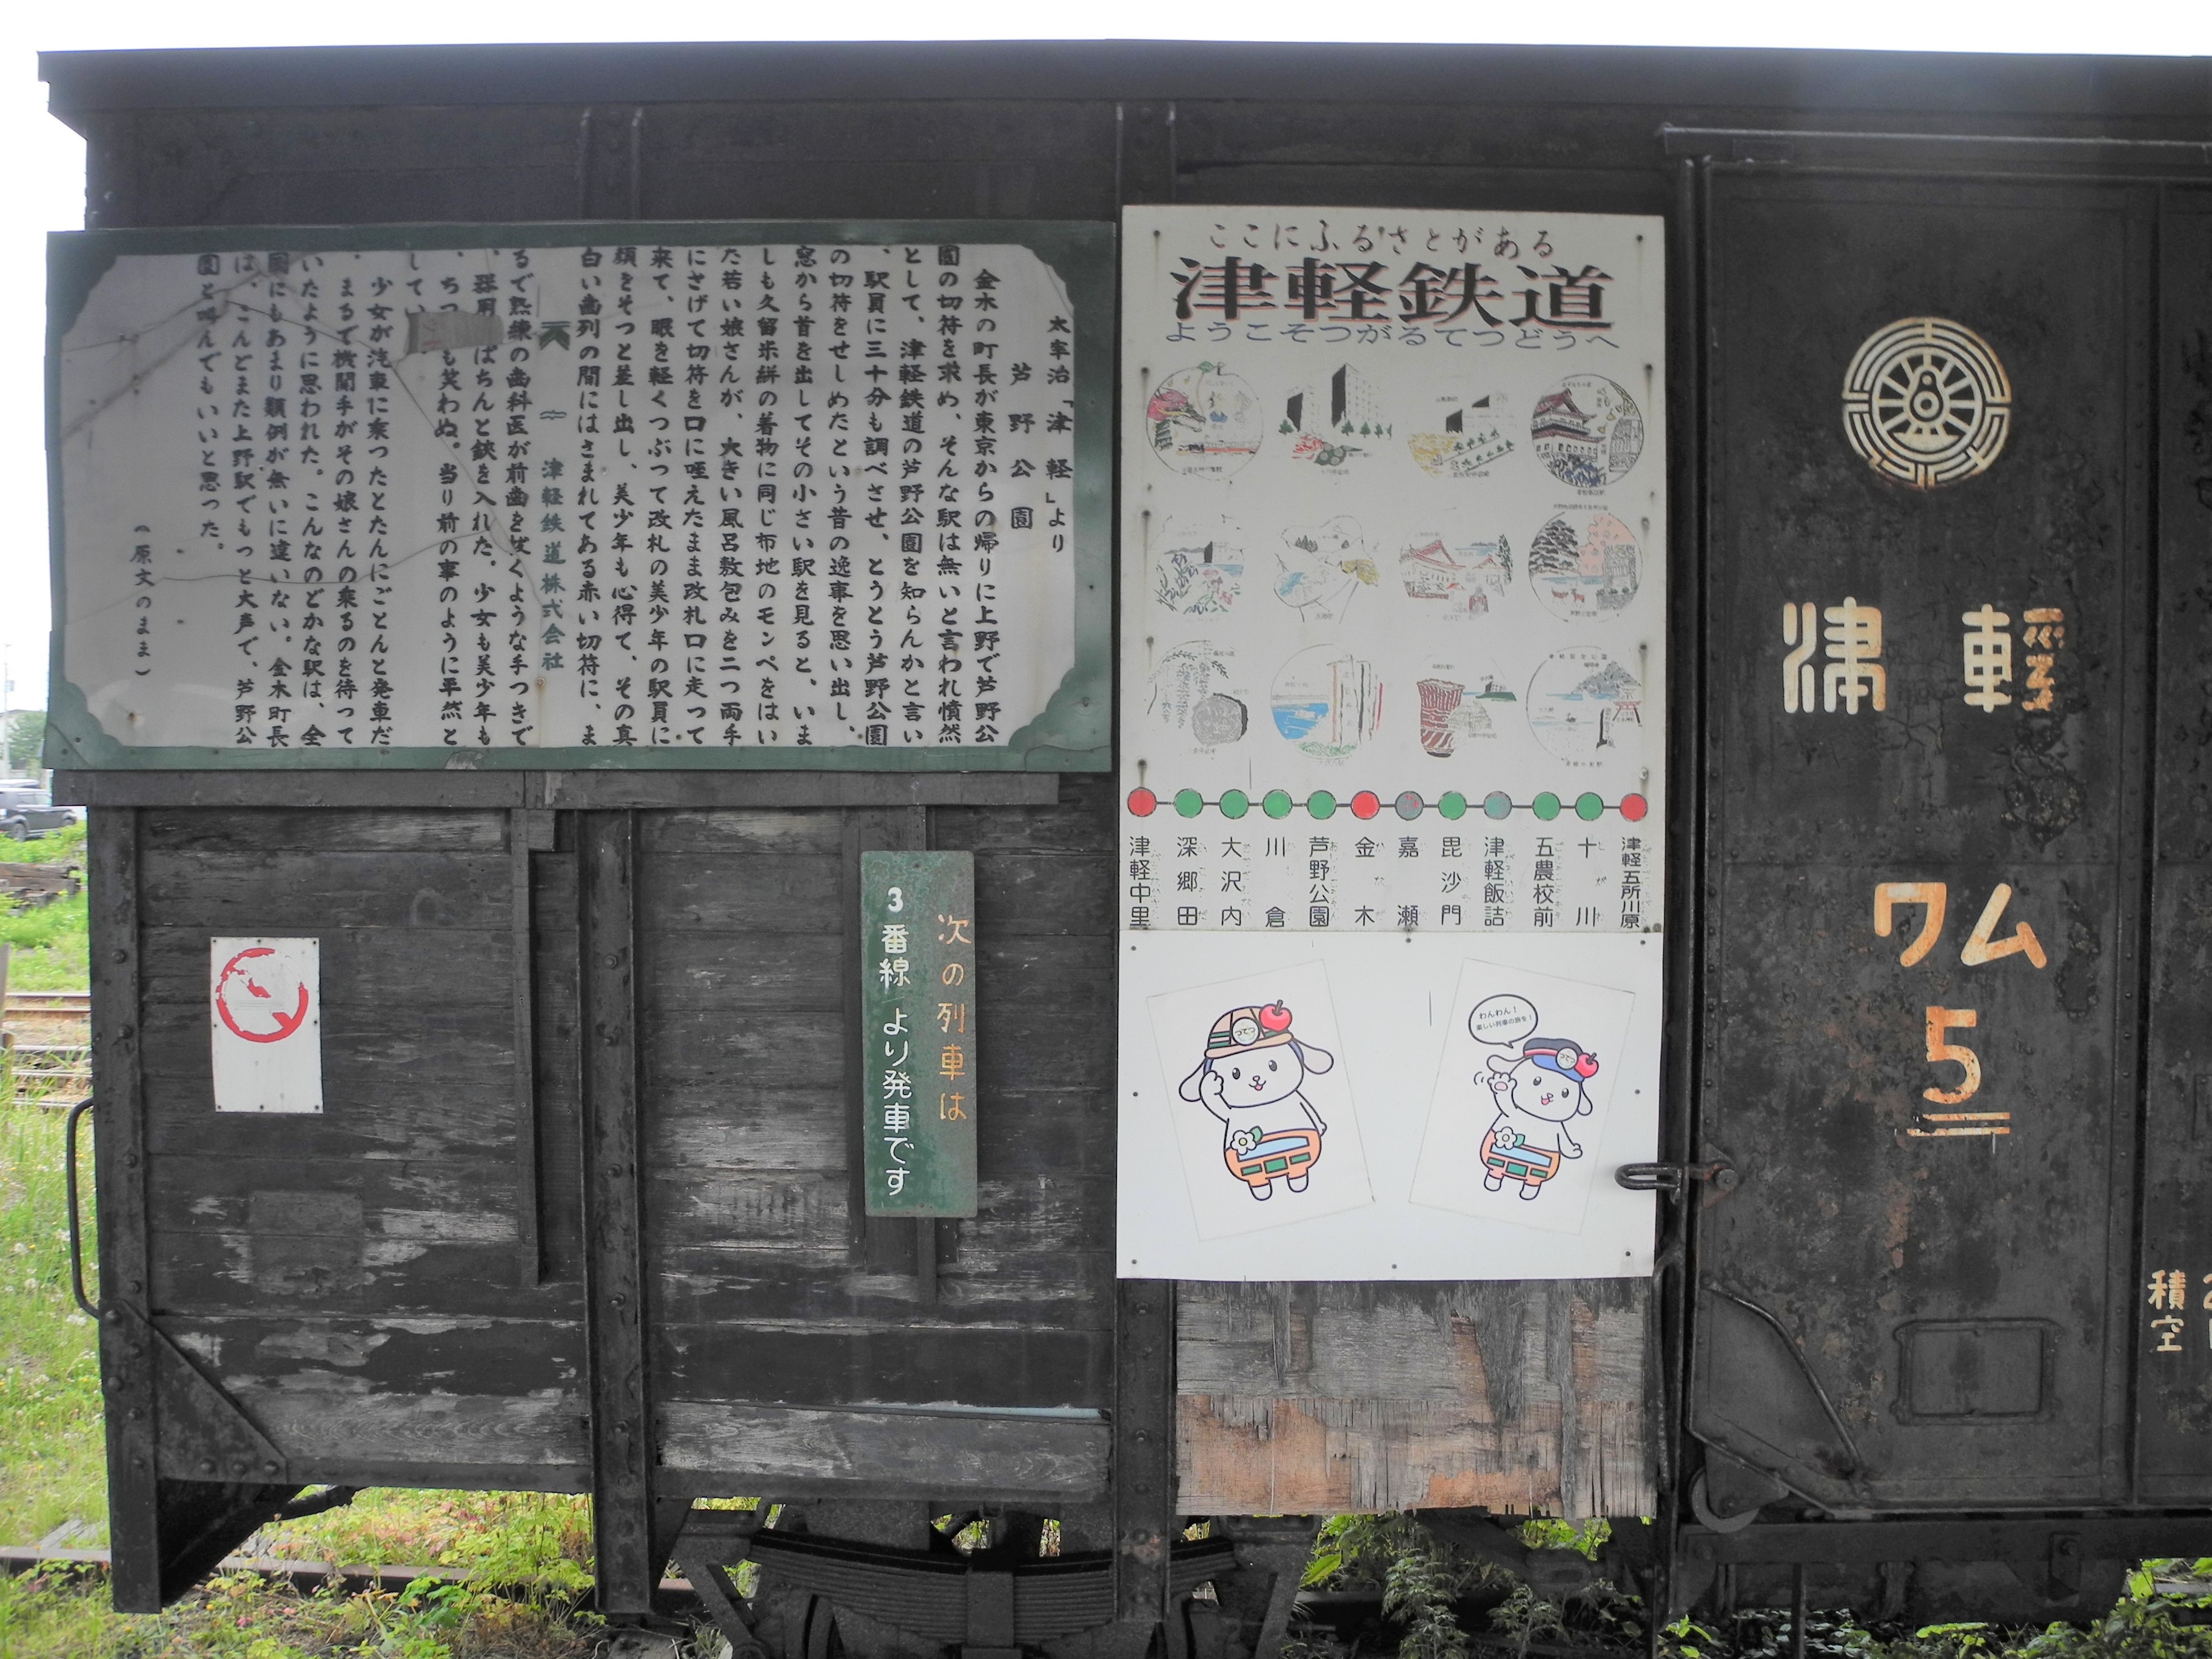 太宰治「津軽」より
芦野公園
金木の町長が東京からの帰りに上野で芦野公
園の切符を求め、そんな駅は無いと言われ憤然
として、津軽鉄道の芦野公園を知らんかと言い
、駅員に三十分も調べさせ、とうとう芦野公園
の切符をせしめたという昔の逸事を思い出し、
窓から首を出してその小さい駅を見ると、いま
しも久留米絣の着物に同じ布地のモンペをはい
た若い娘さんが、大きい風呂敷包みを二つ両手
にさげて切符を口に咥えたまま改札口に走って
来て、眼を軽くつぶって改札の美少年の駅員に
顔をそっと差し出し、美少年も心得て、その真
白い歯列の間にはさまれてある赤い切符に、ま
るで熟練の歯科医が前歯を抜くような手つきで
、器用 ぱちんと鋏を入れた。少女も美少年も
、ちっ も笑わぬ。当り前の事のように平然と
してい
少女が汽車に乗ったとたんにごとんと発車だ
。まるで機関手がその娘さんの乗るのを待って
いたように思われた。こんなのどかな駅は、全
国にもあまり類例が無いに違いない。金木町長
は、こんどまた上野駅でもっと大声で、芦野公
園と叫んでもいいと思った。
(原文のまま)
津軽鉄道株式会社
ここにふるさとがある
津軽鉄道
ようこそつがるてつどうへ
津軽中里
深郷田
大沢内
川倉
芦野公園
金木
嘉瀬
毘沙門
津軽飯詰
五農校前
十川
津軽五所川原
つてつ
わんわん!
楽しい列車の旅を!
つてつ
次の列車は
3番線より発車です
津軽
ワム
5
積 2
空